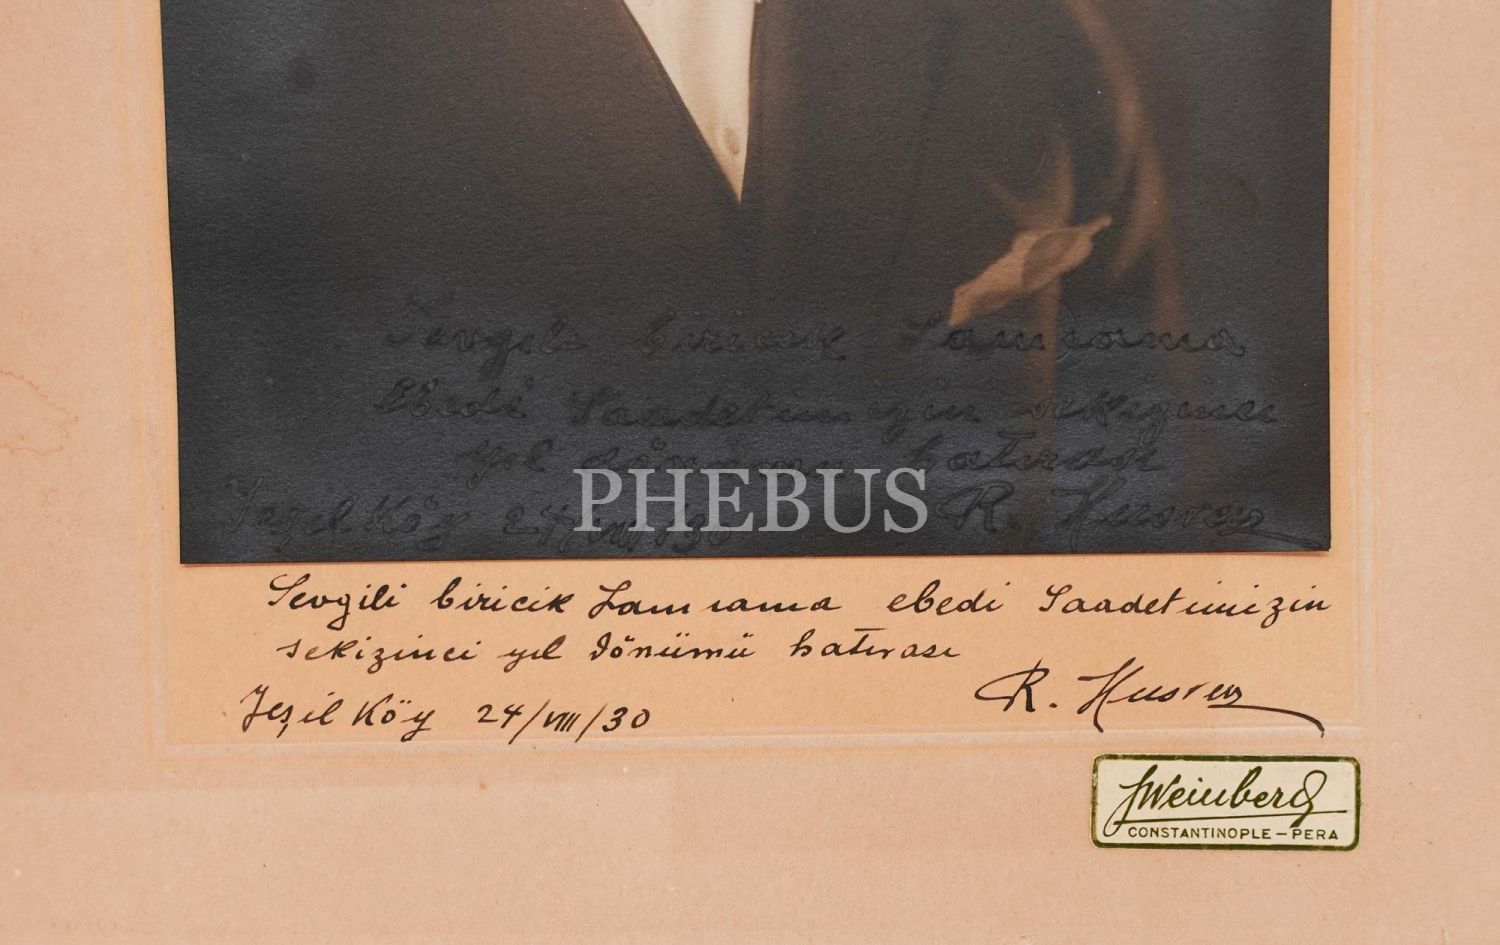 Sevgili biricik Samiama
Ebedi Saadetimizin sekizinci
yıl dönümü hatırası
Yeşil Köy 24/VIII/30 R. Husrev
PHEBUS
Sevgili biricik Samiama ebedi Saadetimizin
sekizinci yıl dönümü hatırası
R. Husrev
Yeşil Köy 24/VIII/30
JWeinberg
CONSTANTINOPLE-PERA